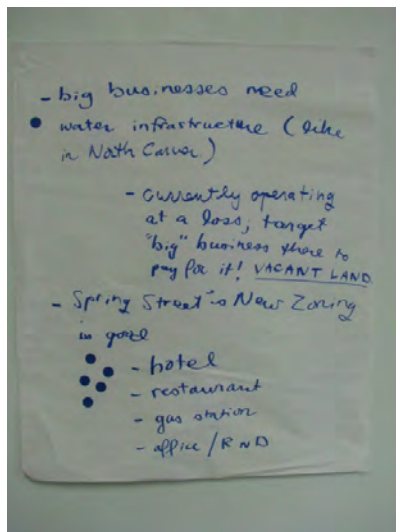 - big businesses need
water infrastructure (like
in North Carver)
- currently operating
at a loss; target
"big" business there to
pay for it! VACANT LAND
- Spring Street is New Zoning
is good
- hotel
- restaurant
- gas station
- office / R N D